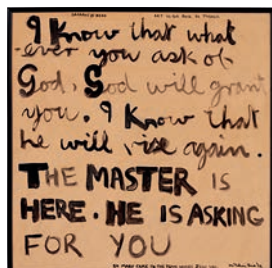 I Know that what
ever you ask of
God, God will grant
you. I Know that
he will rise again.
THE MASTER IS
HERE. HE IS ASKING
FOR YOU